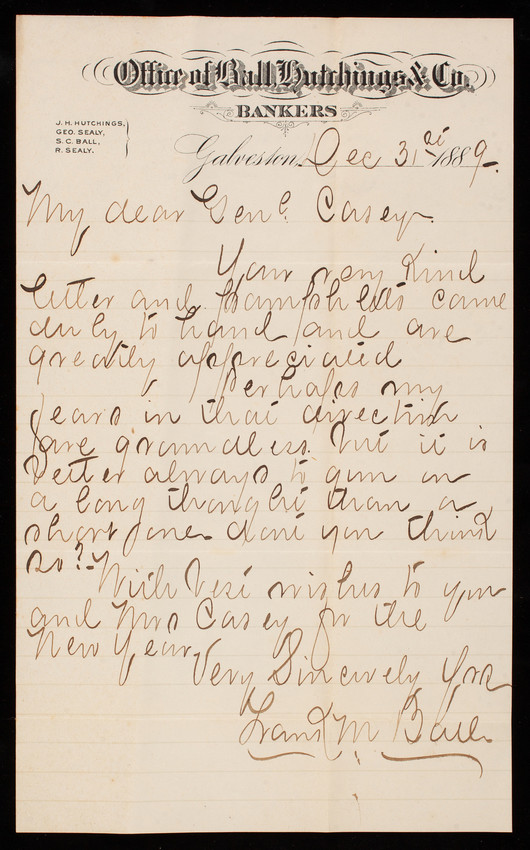 Office of Ball, Hutchings & Co.
BANKERS
J. H. HUTCHINGS,
GEO. SEALY,
S. C. BALL,
R. SEALY.
Galveston, Dec 31st 1889.
My dear Genl. Casey.
Your very kind
letter and pamphlets came
duly to hand and are
greatly appreciated
Perhaps my
fears in that direction
are groundless but it is
better always to gun on
a long thought than a
short one. dont you think
so?
With best wishes to you
and Mrs Casey for the
New Year,
Very Sincerely Yrs
Frank M Ball.